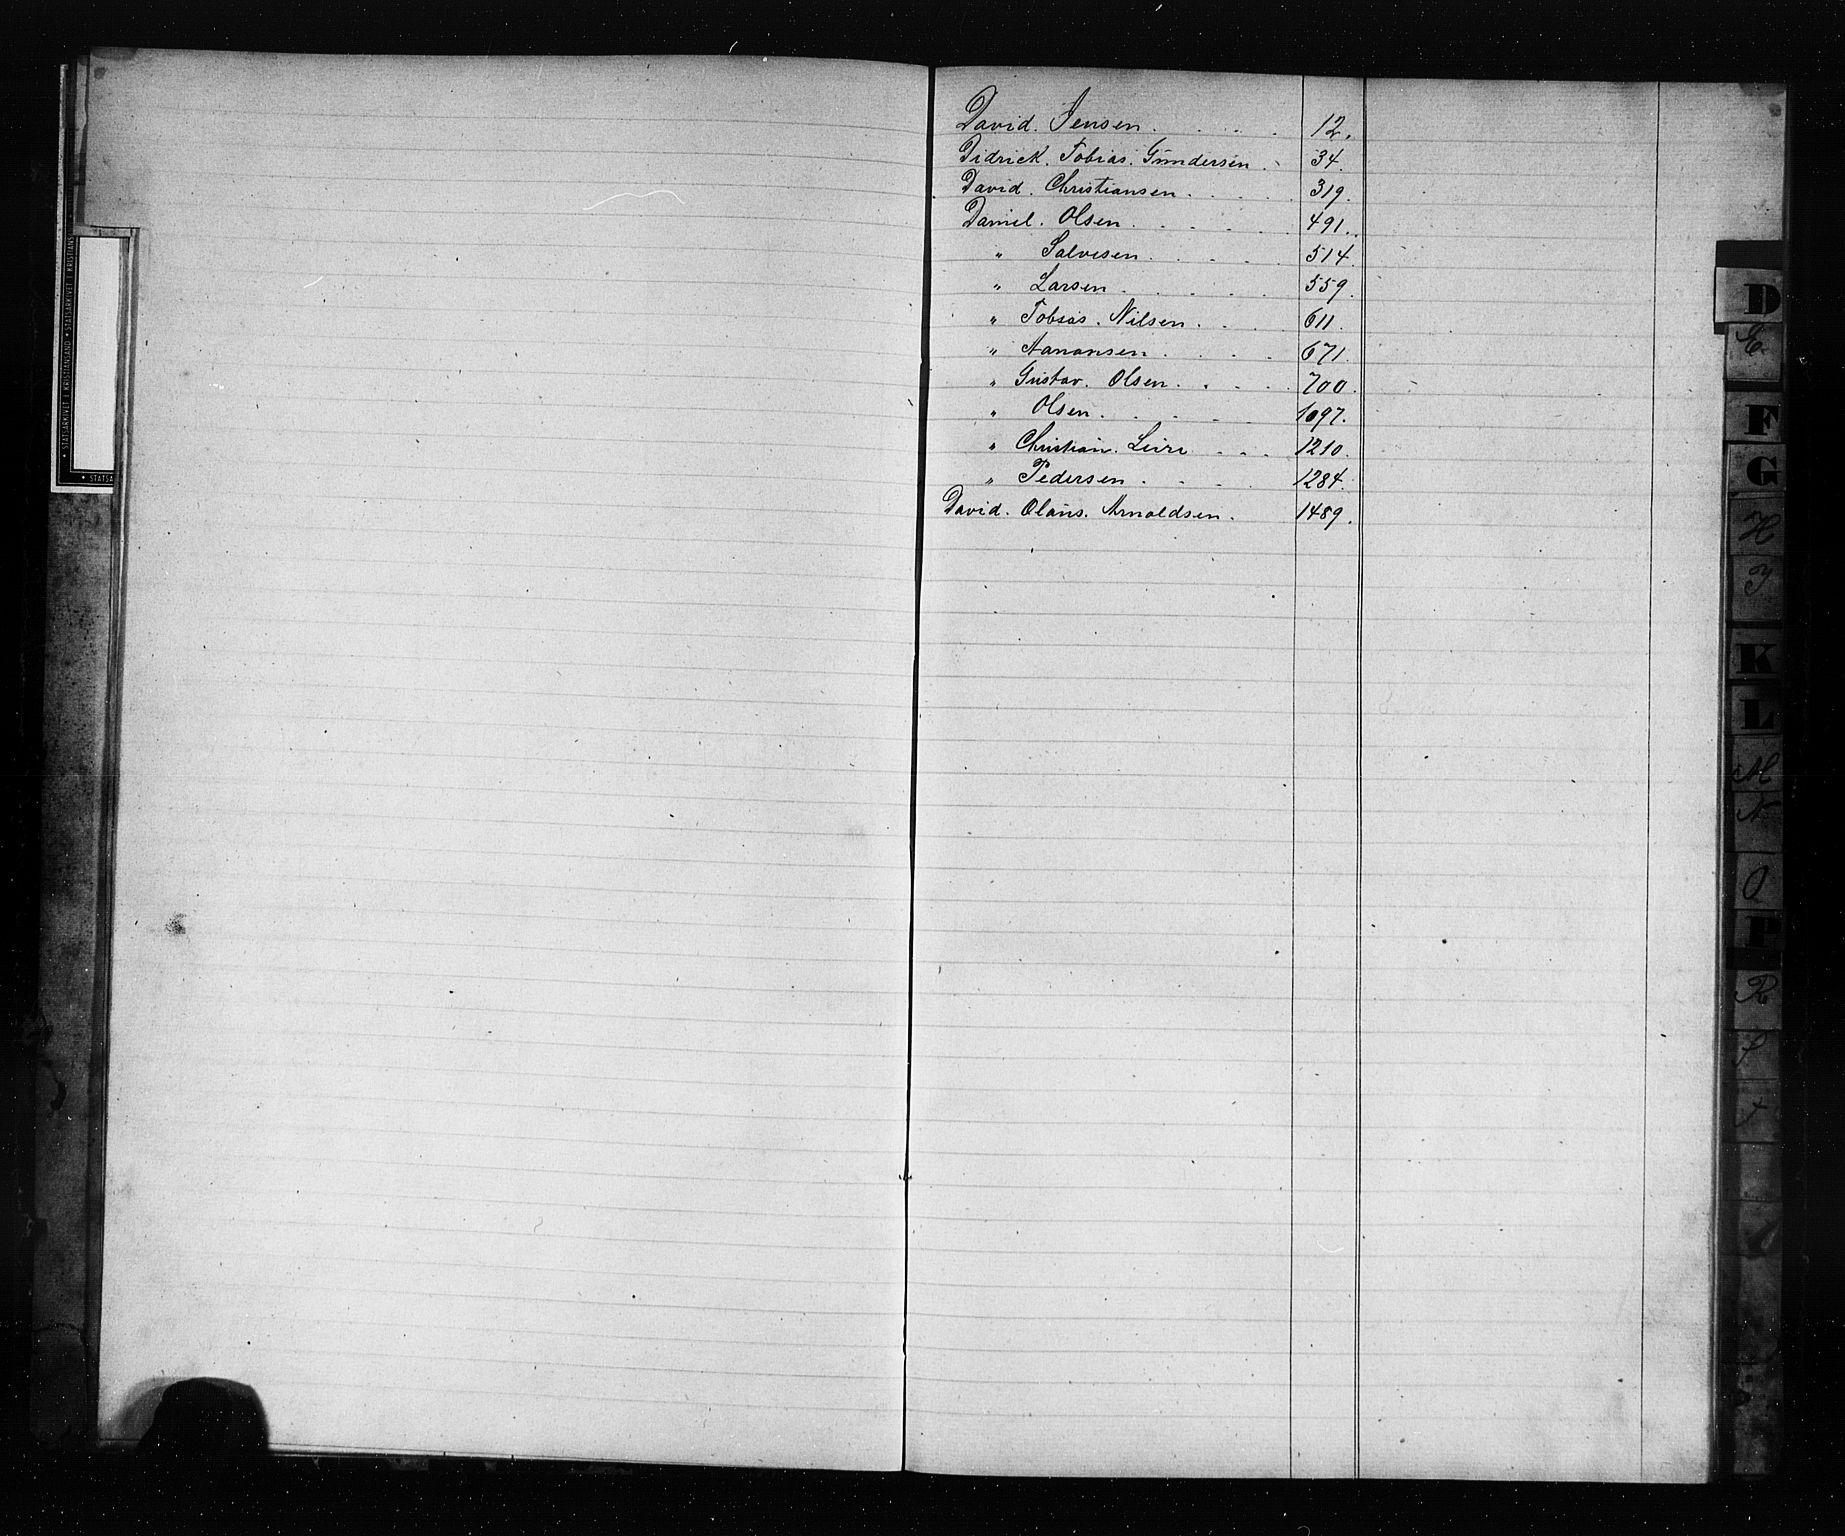 David. Jensen. 12.
Didrick. Tobias. Gundersen. 34.
David. Christiansen. 319.
Daniel. Olsen. 491.
" Salvesen. 514.
" Larsen. 559.
" Tobias. Nilsen. 611.
" Aanonsen. 671.
" Gustav. Olsen. 700.
" Olsen. 1097.
" Christian. Leire 1210.
" Pedersen. 1284.
David. Olaus. Arnoldsen. 1489.
D
E
F
G
H
I
K
L
M
N
O
P
R
S
T
• STATSARKIVET I KRISTIANSAND • STATSARKIVET I KRISTIANS
• STATSA